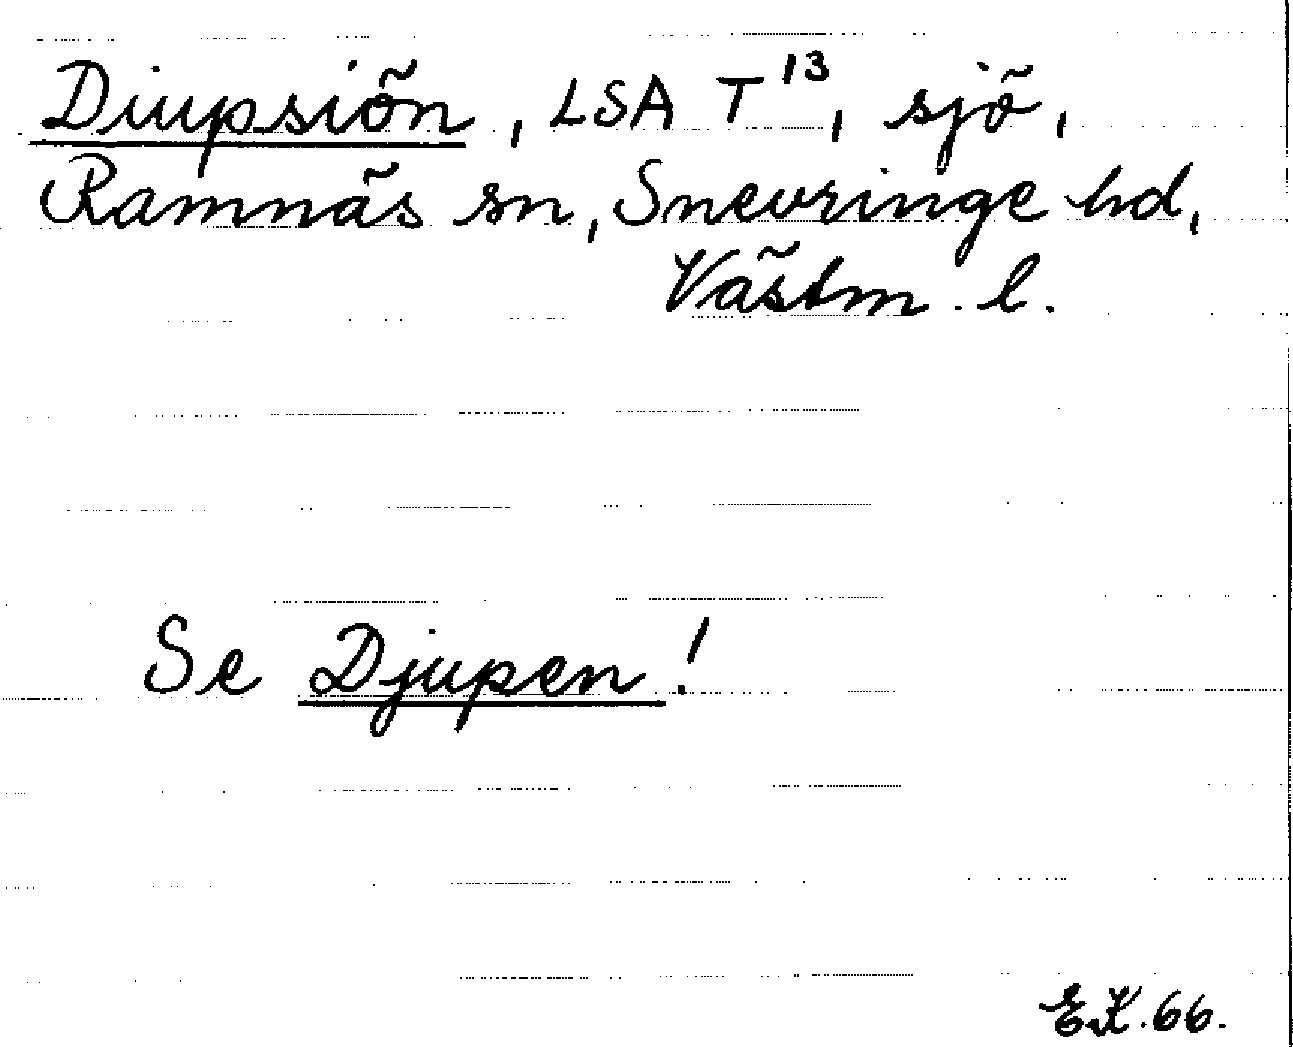 Diupsiön, LSA T¹³, sjö,
Ramnäs sn, Snevringe hd,
Västm. l.
Se Djupen!
E.K. 66.